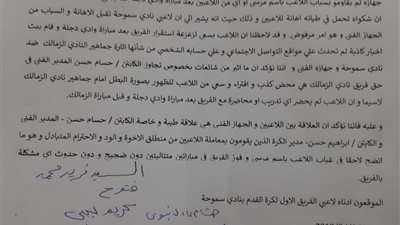 جهازه لم يقاوموا بسباب اللاعب باسم مرسى او اي من اللاعبين بعد مباراة وادي دجلة
ان شكواه تحمل في طياته اهانة للاعبين و ذلك حيث انه يشير الي ان لاعبي نادي سموحة تقبل الاهانة و السباب من
الجهاز الفني و هو امر مرفوض. و قد لاحظنا ان اللاعب يسعى لزعزعة استقرار الفريق بعد مباراة وادي دجلة و قام ببث
اخبار كاذبة لم تحدث علي مواقع التواصل الاجتماعي و علي حسابه الشخصي من شأنها اثارة جماهير نادي الزمالك ضد
نادى سموحة و الجهاز الفنى و اننا نؤكد ان ما اثير من شائعات بخصوص تجاوز الكابتن / حسام حسن المدير الفنى فى
حق فريق نادي الزمالك هي محض كذب و افتراء و سعي من اللاعب للظهور بصورة البطل امام جماهير نادي الزمالك
لاسيما و ان اللاعب لم يحضر اي تدريب او محاضرة مع الفريق بعد مباراة وادي دجلة و قبل مباراة الزمالك.
و عليه فاننا نؤكد ان العلاقة بين اللاعبين و الجهاز الفني هى علاقة طيبة و خاصة الكابتن / حسام حسن - المدير الفنى
و الكابتن / ابراهيم حسن- مدير الكرة الذين يقومون بمعاملة اللاعبين من منطلق الاخوة و الود و الاحترام المتبادل و هو ما
اتضح لاحقا فى غياب اللاعب باسم مرسى و فوز الفريق في مباراتين متتاليتين دون ضجيج و دون حدوث اى مشكلة
بالفريق.
السيد فريد محمد
الموقعون ادناه لاعبي الفريق الاول لكرة القدم بنادي سموحة
فتوح
كريم يحيى